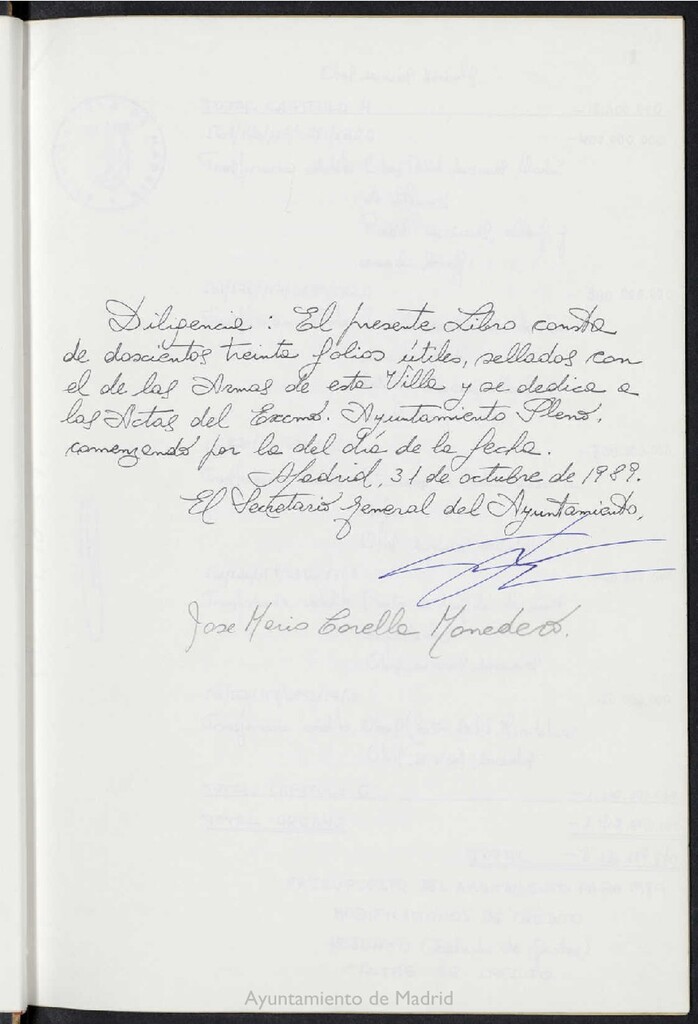 Diligencia : El presente Libro consta
de doscientos treinta folios útiles, sellados con
el de las Armas de esta Villa y se dedica a
las Actas del Excmo. Ayuntamiento Pleno,
comenzando por la del día de la fecha.
Madrid, 31 de octubre de 1989.
El Secretario General del Ayuntamiento,
Jose Mario Corella Monedero.
Ayuntamiento de Madrid